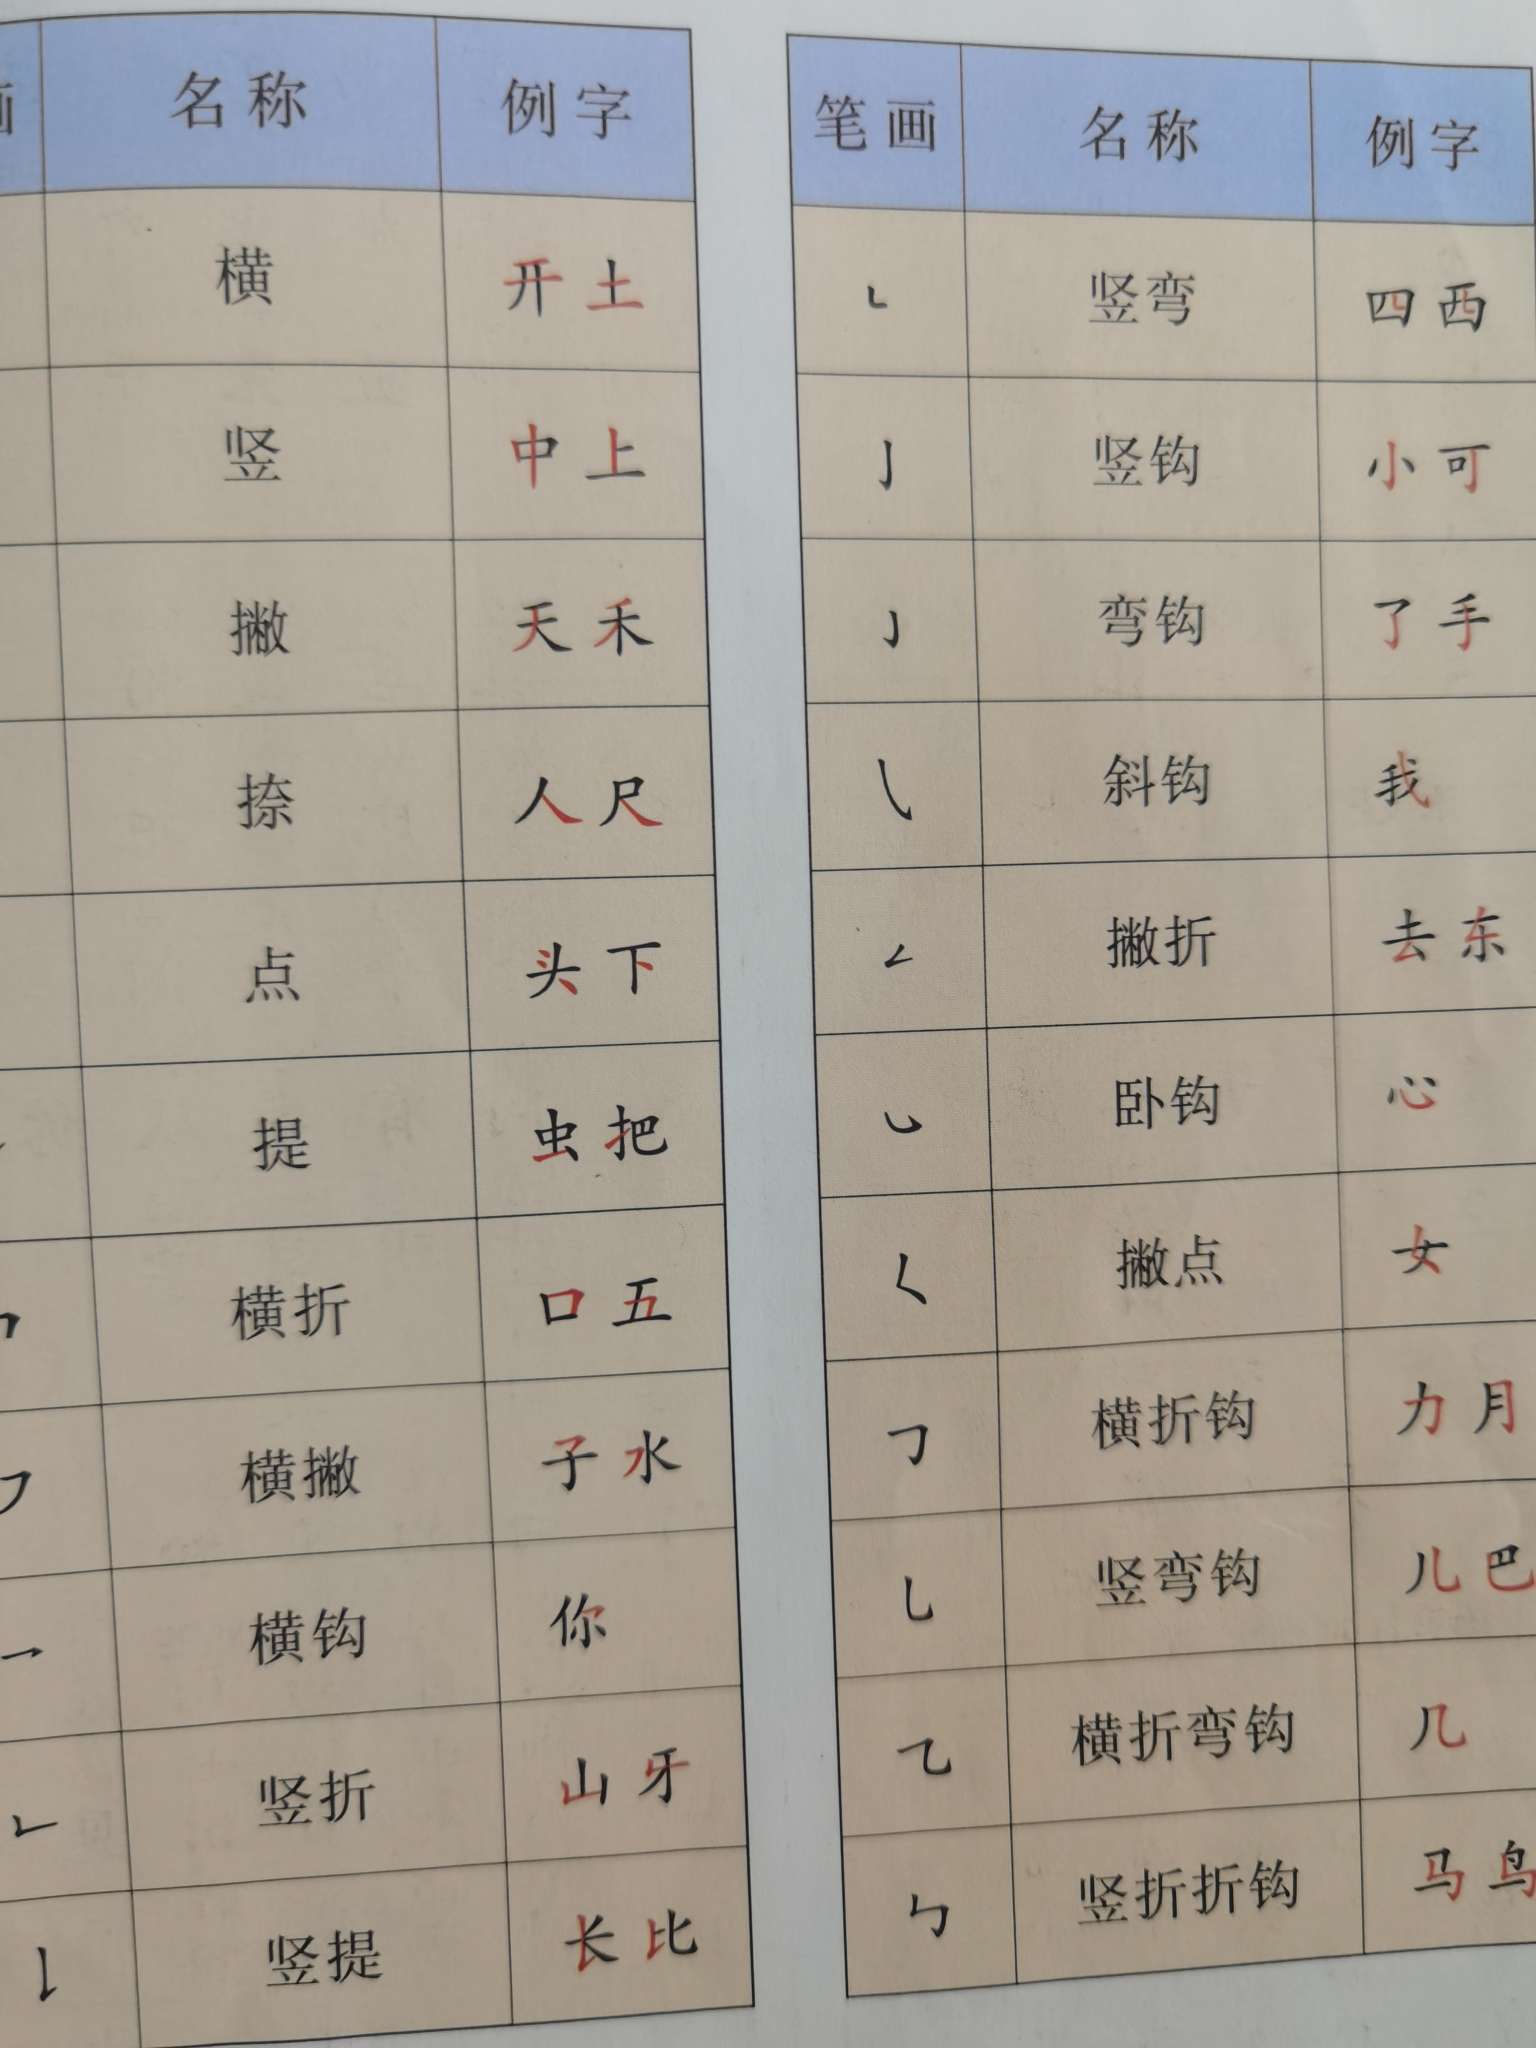 名称 例字
横 开 土
竖 中 上
撇 天 禾
捺 人 尺
点 头 下
提 虫 把
横折 口 五
横撇 子 水
横钩 你
竖折 山 牙
竖提 长 比
笔画 名称 例字
竖弯 四 西
亅 竖钩 小 可
弯钩 了 手
斜钩 我
撇折 去 东
卧钩 心
撇点 女
横折钩 力 月
乚 竖弯钩 儿 巴
横折弯钩 几
竖折折钩 马 鸟